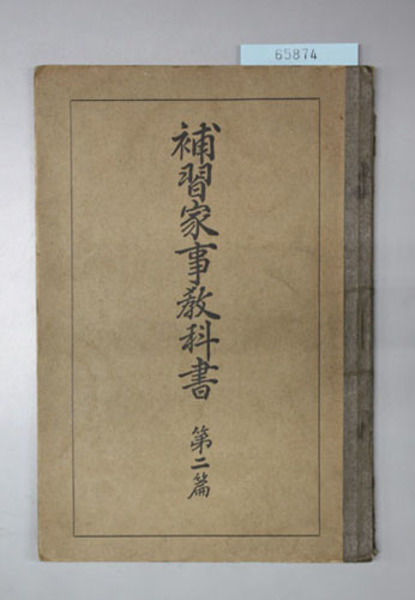 65874
補習家事教科書 第二篇